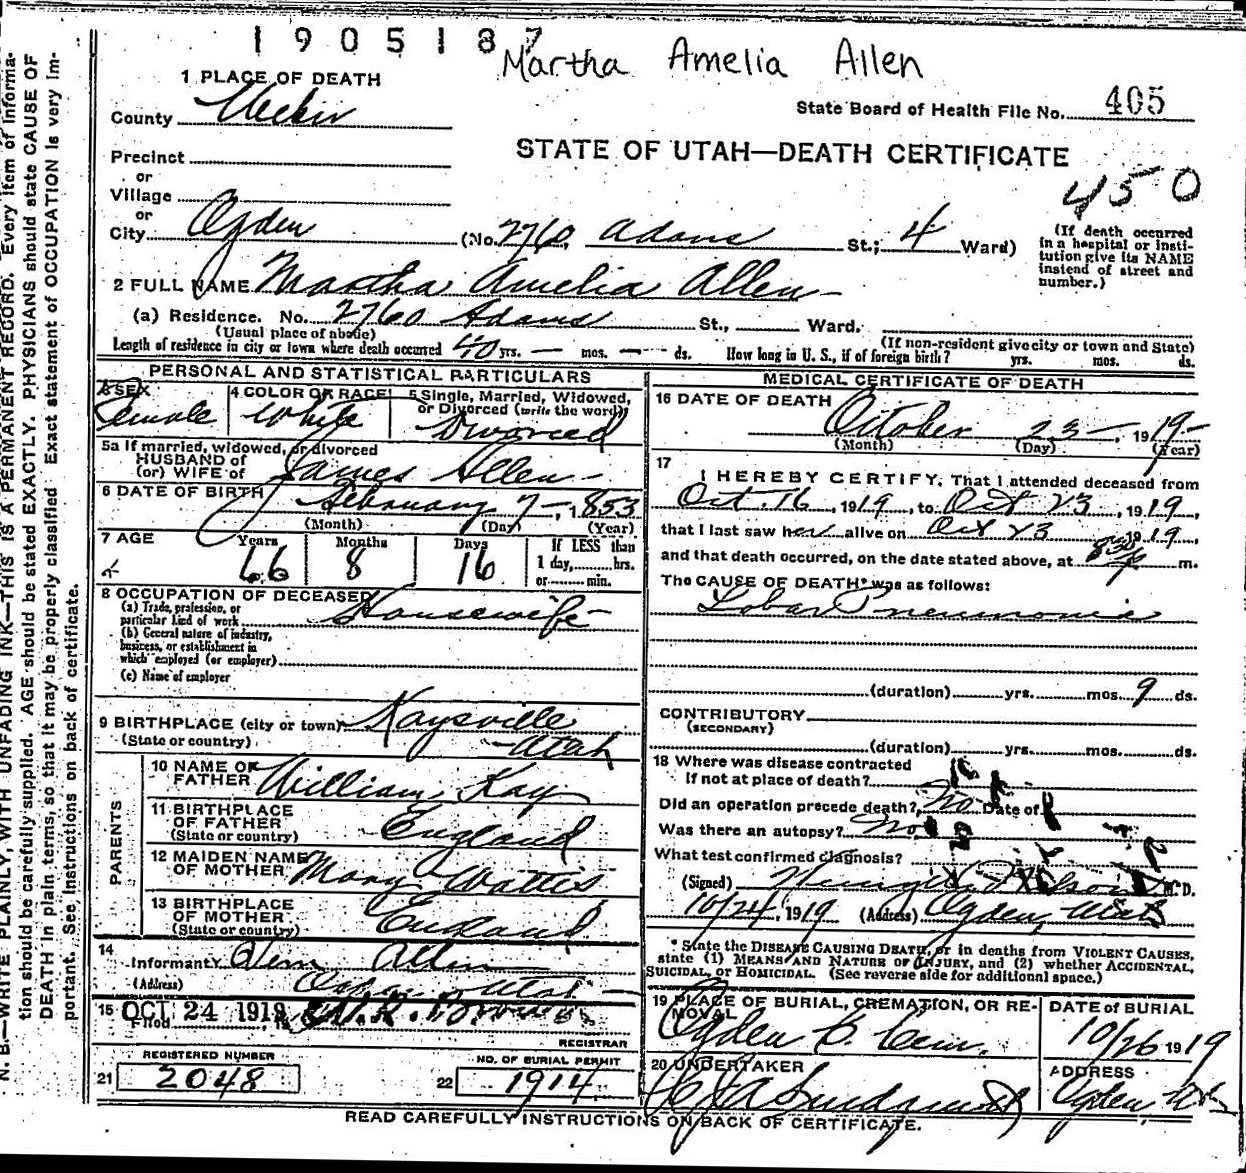 1905187
Martha Amelia Allen
1 PLACE OF DEATH
County Weber
State Board of Health File No. 405
Precinct
or
STATE OF UTAH—DEATH CERTIFICATE
450
Village
or
City Ogden (No. 2760 Adams St.; 4 Ward)
(If death occurred
in a hospital or insti-
tution give its NAME
instead of street and
number.)
2 FULL NAME Martha Amelia Allen
(a) Residence. No. 2760 Adams St., Ward.
(Usual place of abode) (If non-resident give city or town and State)
Length of residence in city or town where death occurred 40 yrs. — mos. — ds. How long in U. S., if of foreign birth? yrs. mos. ds.
PERSONAL AND STATISTICAL PARTICULARS
3 SEX
Female
4 COLOR OR RACE
White
5 Single, Married, Widowed,
or Divorced (write the word)
Divorced
5a If married, widowed, or divorced
HUSBAND of
(or) WIFE of James Allen
6 DATE OF BIRTH February 7 — 1853
(Month) (Day) (Year)
7 AGE Years Months Days If LESS than
66 8 16 1 day, hrs.
or min.
8 OCCUPATION OF DECEASED
(a) Trade, profession, or
particular kind of work Housewife
(b) General nature of industry,
business, or establishment in
which employed (or employer)
(c) Name of employer
9 BIRTHPLACE (city or town) Kaysville
(State or country) Utah
PARENTS
10 NAME OF
FATHER William Kay
11 BIRTHPLACE
OF FATHER England
(State or country)
12 MAIDEN NAME
OF MOTHER Mary Wattis
13 BIRTHPLACE
OF MOTHER England
(State or country)
14
Informant Vern Allen
(Address) Ogden Utah
15 OCT 24 1919
Filed
REGISTRAR
REGISTERED NUMBER
21 2048
NO. OF BURIAL PERMIT
22 1914
MEDICAL CERTIFICATE OF DEATH
16 DATE OF DEATH October 23 — 1919
(Month) (Day) (Year)
17
I HEREBY CERTIFY, That I attended deceased from
Oct. 16, 1919, to Oct 23, 1919,
that I last saw her alive on Oct 23 1919,
and that death occurred, on the date stated above, at m.
The CAUSE OF DEATH* was as follows:
Lobar Pneumonia
(duration) yrs. mos. 9 ds.
CONTRIBUTORY
(SECONDARY)
(duration) yrs. mos. ds.
18 Where was disease contracted
if not at place of death?
Did an operation precede death? No Date of
Was there an autopsy? No
What test confirmed diagnosis?
(Signed) M. D.
10/24, 1919 (Address) Ogden, Utah
* State the DISEASE CAUSING DEATH, or in deaths from VIOLENT CAUSES,
state (1) MEANS AND NATURE OF INJURY, and (2) whether ACCIDENTAL,
SUICIDAL, or HOMICIDAL. (See reverse side for additional space.)
19 PLACE OF BURIAL, CREMATION, OR RE-
MOVAL
Ogden C. Cem.
DATE OF BURIAL
10/26 1919
20 UNDERTAKER
ADDRESS
Ogden, Ut
READ CAREFULLY INSTRUCTIONS ON BACK OF CERTIFICATE.
N. B.—WRITE PLAINLY, WITH UNFADING INK—THIS IS A PERMANENT RECORD. Every item of informa-
tion should be carefully supplied. AGE should be stated EXACTLY. PHYSICIANS should state CAUSE OF
DEATH in plain terms, so that it may be properly classified. Exact statement of OCCUPATION is very im-
portant. See instructions on back of certificate.